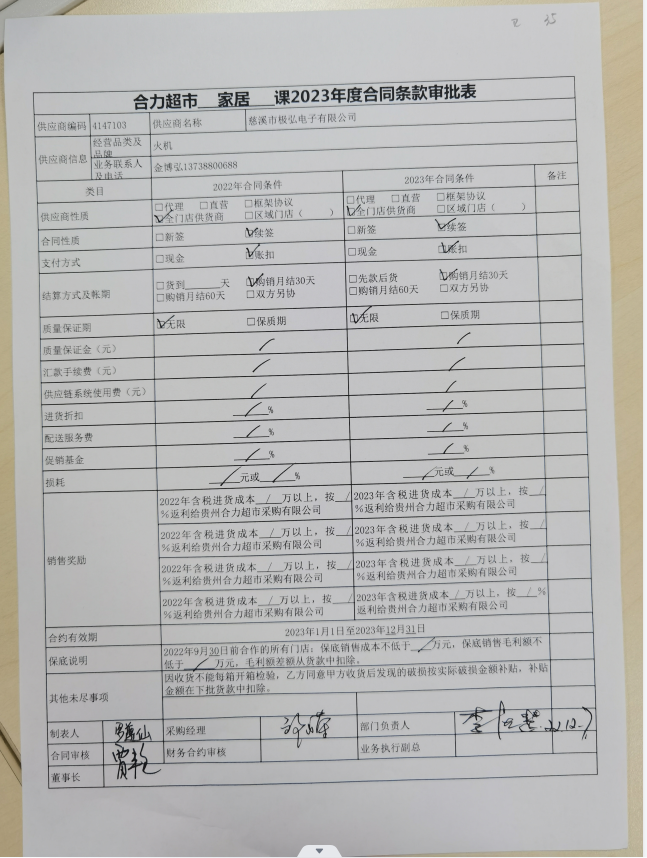 35
合力超市 家居 课2023年度合同条款审批表
供应商编码 4147103 供应商名称 慈溪市极弘电子有限公司
供应商信息 经营品类及品牌 火机
业务联系人及电话 金博弘13738800688
类目 2022年合同条件 2023年合同条件 备注
供应商性质 □代理 □直营 □框架协议 □代理 □直营 □框架协议
☑全门店供货商 □区域门店（ ） ☑全门店供货商 □区域门店（ ）
合同性质 □新签 ☑续签 □新签 ☑续签
支付方式 □现金 ☑账扣 □现金 ☑账扣
结算方式及帐期 □货到____天 ☑购销月结30天 □先款后货 ☑购销月结30天
□购销月结60天 □双方另协 □购销月结60天 □双方另协
质量保证期 ☑无限 □保质期 ☑无限 □保质期
质量保证金（元） / /
汇款手续费（元） / /
供应链系统使用费（元） / /
进货折扣 / % / %
配送服务费 / % / %
促销基金 / % / %
损耗 / 元或 / % / 元或 / %
销售奖励
2022年含税进货成本 / 万以上，按 / 2023年含税进货成本 / 万以上，按 /
%返利给贵州合力超市采购有限公司 %返利给贵州合力超市采购有限公司
2022年含税进货成本 / 万以上，按 / 2023年含税进货成本 / 万以上，按 /
%返利给贵州合力超市采购有限公司 %返利给贵州合力超市采购有限公司
2022年含税进货成本 / 万以上，按 / 2023年含税进货成本 / 万以上，按 /
%返利给贵州合力超市采购有限公司 %返利给贵州合力超市采购有限公司
2022年含税进货成本 / 万以上，按 / 2023年含税进货成本 / 万以上，按 / %
%返利给贵州合力超市采购有限公司 返利给贵州合力超市采购有限公司
合约有效期 2023年1月1日至2023年12月31日
保底说明 2022年9月30日前合作的所有门店：保底销售成本不低于 / 万元，保底销售毛利额不
低于 / 万元，毛利额差额从货款中扣除。
其他未尽事项 因收货不能每箱开箱检验，乙方同意甲方收货后发现的破损按实际破损金额补贴，补贴
金额在下批货款中扣除。
制表人 采购经理 部门负责人
合同审核 财务合约审核 业务执行副总
董事长